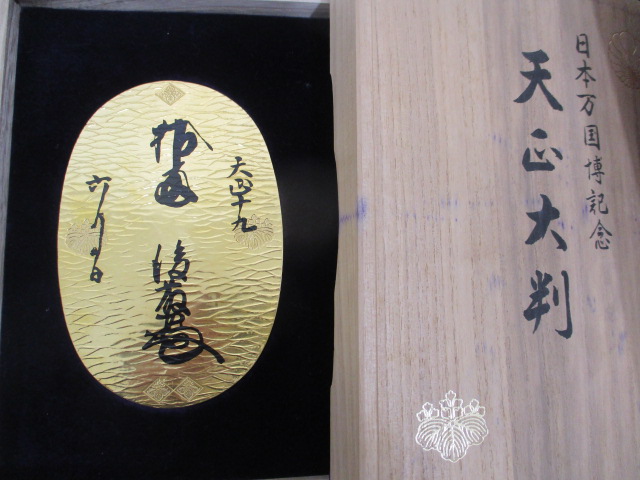 日本万国博記念
天正大判
天正十九
拾両 後藤
六月五日